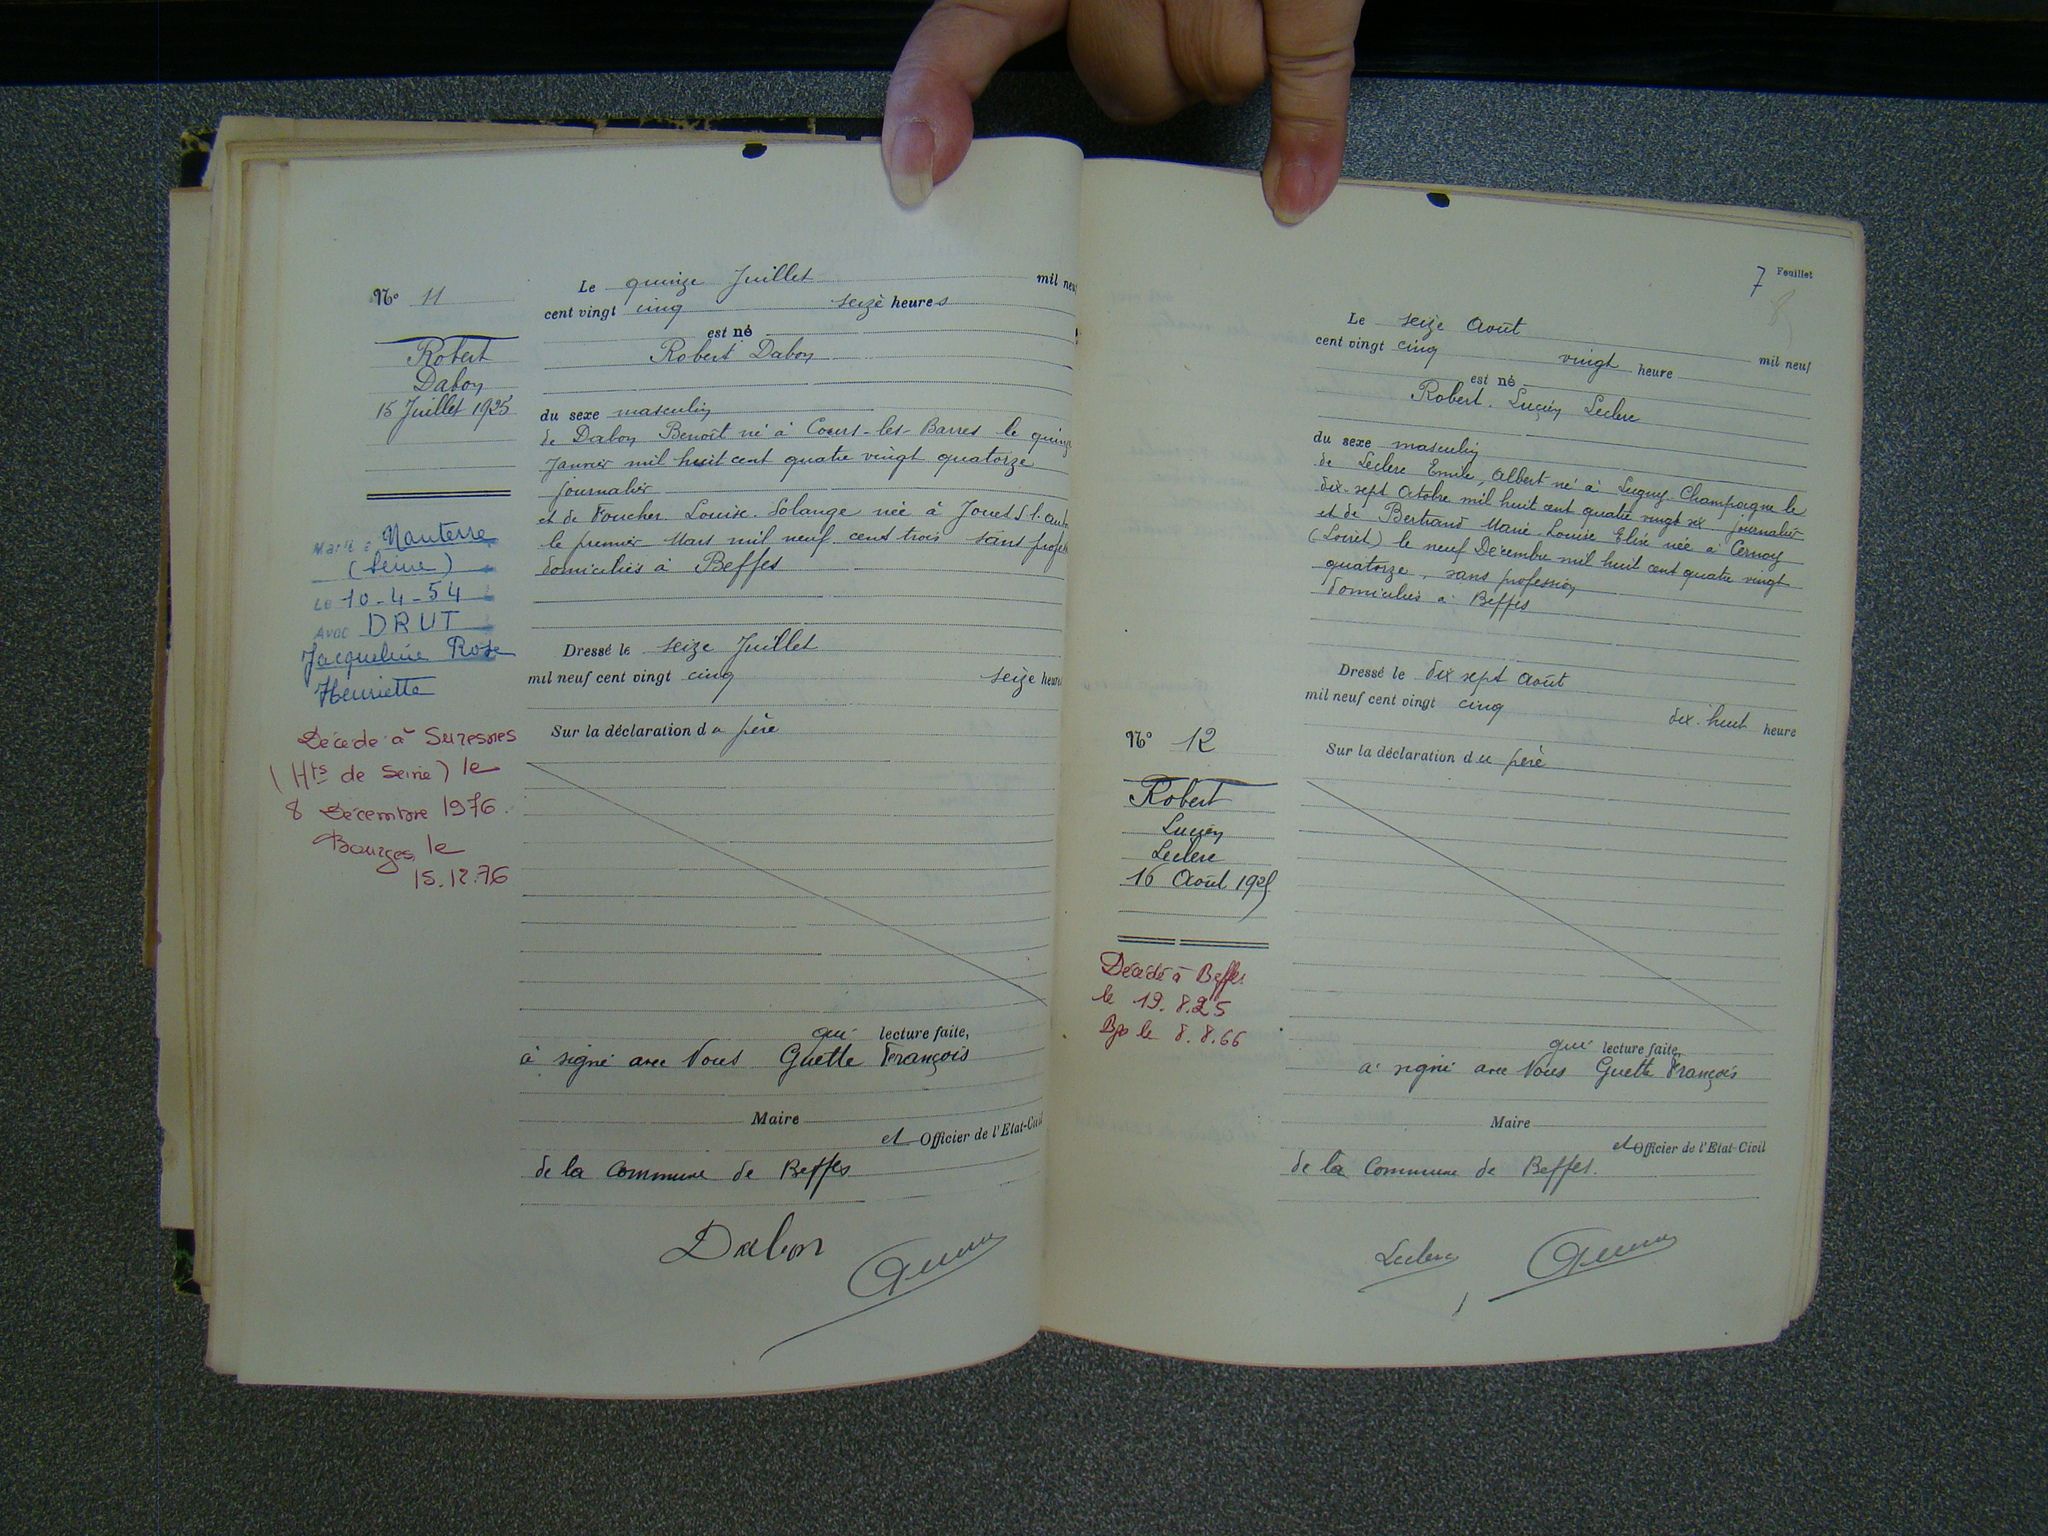 N° 11
Robert
Dabon
15 Juillet 1925
Marié à Nanterre
(Seine)
Le 10-4-54
Avec DRUT
Jacqueline Rose
Henriette
Décédé à Suresnes
(Hts de Seine) le
8 Décembre 1976.
Bourges, le
15.12.76
Le quinze Juillet mil neu
cent vingt cinq seize heures
est né
Robert Dabon
du sexe masculin
de Dabon Benoît né à Cours-les-Barres le quinze
Janvier mil huit cent quatre vingt quatorze
journalier
et de Foucher Louise Solange née à Jouet s. l. aub
le premier Mars mil neuf cent trois sans profes
domiciliés à Beffes
Dressé le seize Juillet
mil neuf cent vingt cinq seize heures
Sur la déclaration du père
qui lecture faite,
a signé avec Nous Guette François
Maire
et Officier de l'Etat-Civil
de la Commune de Beffes
Dabon
7 Feuillet
8
Le seize Août
mil neuf
cent vingt cinq vingt heure
est né
Robert. Lucien Leclerc
du sexe masculin
de Leclerc Emile, Albert né à Lugny-Champagne le
dix-sept Octobre mil huit cent quatre vingt six journalier
et de Bertrand Marie Louise Elise née à Cernoy
(Loiret) le neuf Décembre mil huit cent quatre vingt
quatorze, sans profession
domiciliés à Beffes
Dressé le dix sept Août
mil neuf cent vingt cinq dix-huit heure
Sur la déclaration du père
N° 12
Robert
Lucien
Leclerc
16 Août 1925
Décédé à Beffes
le 19.8.25
Bgs le 8.8.66
qui lecture faite,
a signé avec Nous Guette François
Maire
et Officier de l'Etat-Civil
de la Commune de Beffes.
Leclerc